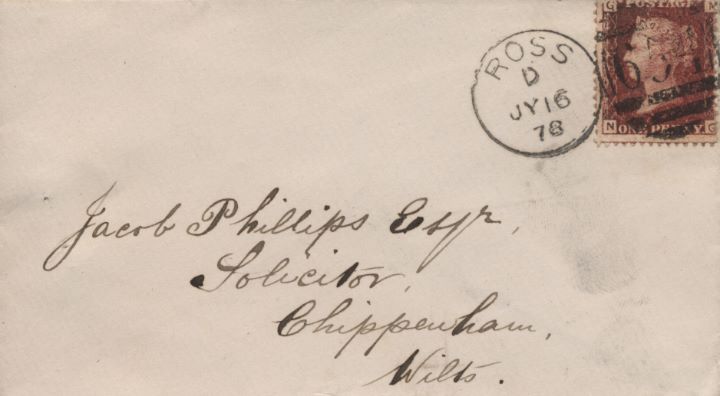 ROSS
D
JY 16
78
G N
POSTAGE
N ONE PENNY G
Jacob Phillips Esqr,
Solicitor,
Chippenham,
Wilts.